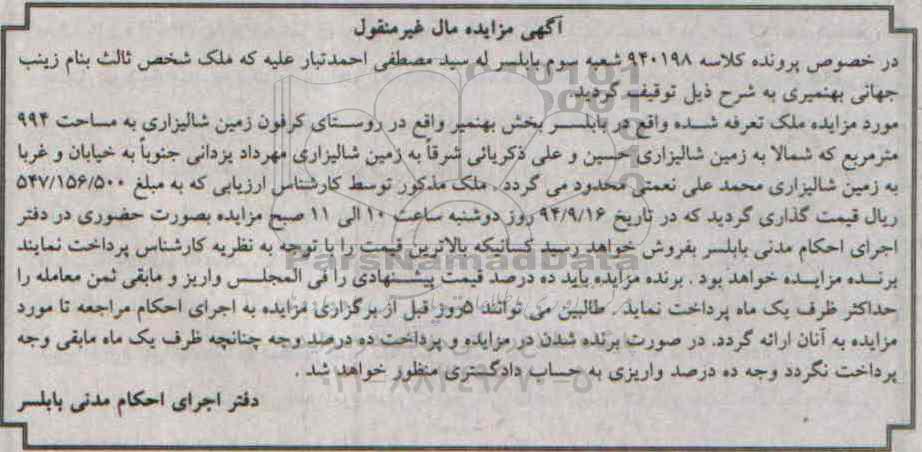 آگهی مزایده مال غیرمنقول
در خصوص پرونده کلاسه ۹۴۰۱۹۸ شعبه سوم بابلسر له سید مصطفی احمدتبار علیه که ملک شخص ثالث بنام زینب
جهانی بهنمیری به شرح ذیل توقیف گردید.
مورد مزایده ملک تعرفه شده واقع در بابلسر بخش بهنمیر واقع در روستای کرفون زمین شالیزاری به مساحت ۹۹۴
مترمربع که شمالا به زمین شالیزاری حسین و علی ذکریائی شرقاً به زمین شالیزاری مهرداد یزدانی جنوباً به خیابان و غربا
به زمین شالیزاری محمد علی نعمتی محدود می گردد . ملک مذکور توسط کارشناس ارزیابی که به مبلغ ۵۴۷/۱۵۶/۵۰۰
ریال قیمت گذاری گردید که در تاریخ ۹۴/۹/۱۶ روز دوشنبه ساعت ۱۰ الی ۱۱ صبح مزایده بصورت حضوری در دفتر
اجرای احکام مدنی بابلسر بفروش خواهد رسید کسانیکه بالاترین قیمت را با توجه به نظریه کارشناس پرداخت نمایند
برنده مزایده خواهد بود . برنده مزایده باید ده درصد قیمت پیشنهادی را فی المجلس واریز و مابقی ثمن معامله را
حداکثر ظرف یک ماه پرداخت نماید . طالبین می توانند ۵روز قبل از برگزاری مزایده به اجرای احکام مراجعه تا مورد
مزایده به آنان ارائه گردد. در صورت برنده شدن در مزایده و پرداخت ده درصد وجه چنانچه ظرف یک ماه مابقی وجه
پرداخت نگردد وجه ده درصد واریزی به حساب دادگستری منظور خواهد شد .
دفتر اجرای احکام مدنی بابلسر
ParsNamadData
۰۲۱-۸۸۳۴۹۶۷۰-۵